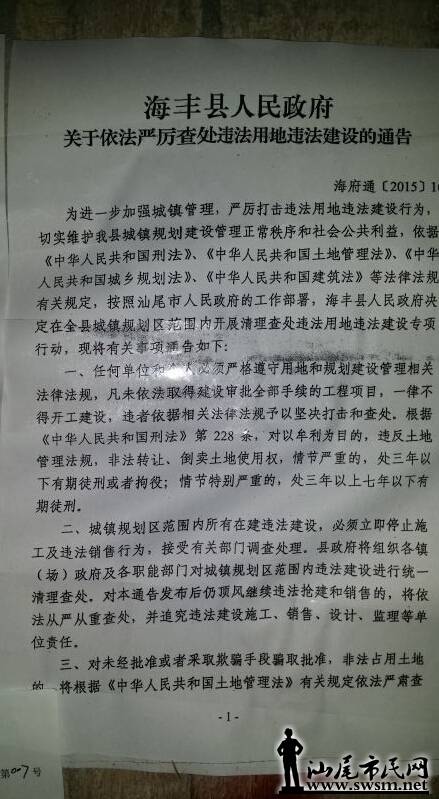 海丰县人民政府
关于依法严厉查处违法用地违法建设的通告
海府通〔2015〕10
为进一步加强城镇管理，严厉打击违法用地违法建设行为，
切实维护我县城镇规划建设管理正常秩序和社会公共利益，依据
《中华人民共和国刑法》、《中华人民共和国土地管理法》、《中华
人民共和国城乡规划法》、《中华人民共和国建筑法》等法律法规
有关规定，按照汕尾市人民政府的工作部署，海丰县人民政府决
定在全县城镇规划区范围内开展清理查处违法用地违法建设专项
行动，现将有关事项通告如下：
一、任何单位和 人必须严格遵守用地和规划建设管理相关
法律法规，凡未依法取得建设审批全部手续的工程项目，一律不
得开工建设，违者依据相关法律法规予以坚决打击和查处。根据
《中华人民共和国刑法》第 228 条，对以牟利为目的，违反土地
管理法规，非法转让、倒卖土地使用权，情节严重的，处三年以
下有期徒刑或者拘役；情节特别严重的，处三年以上七年以下有
期徒刑。
二、城镇规划区范围内所有在建违法建设，必须立即停止施
工及违法销售行为，接受有关部门调查处理。县政府将组织各镇
（场）政府及各职能部门对城镇规划区范围内违法建设进行统一
清理查处。对本通告发布后仍顶风继续违法抢建和销售的，将依
法从严从重查处，并追究违法建设施工、销售、设计、监理等单
位责任。
三、对未经批准或者采取欺骗手段骗取批准，非法占用土地
的，将根据《中华人民共和国土地管理法》有关规定依法严肃查
- 1 -
第007号
汕尾市民网
www.swsm.net